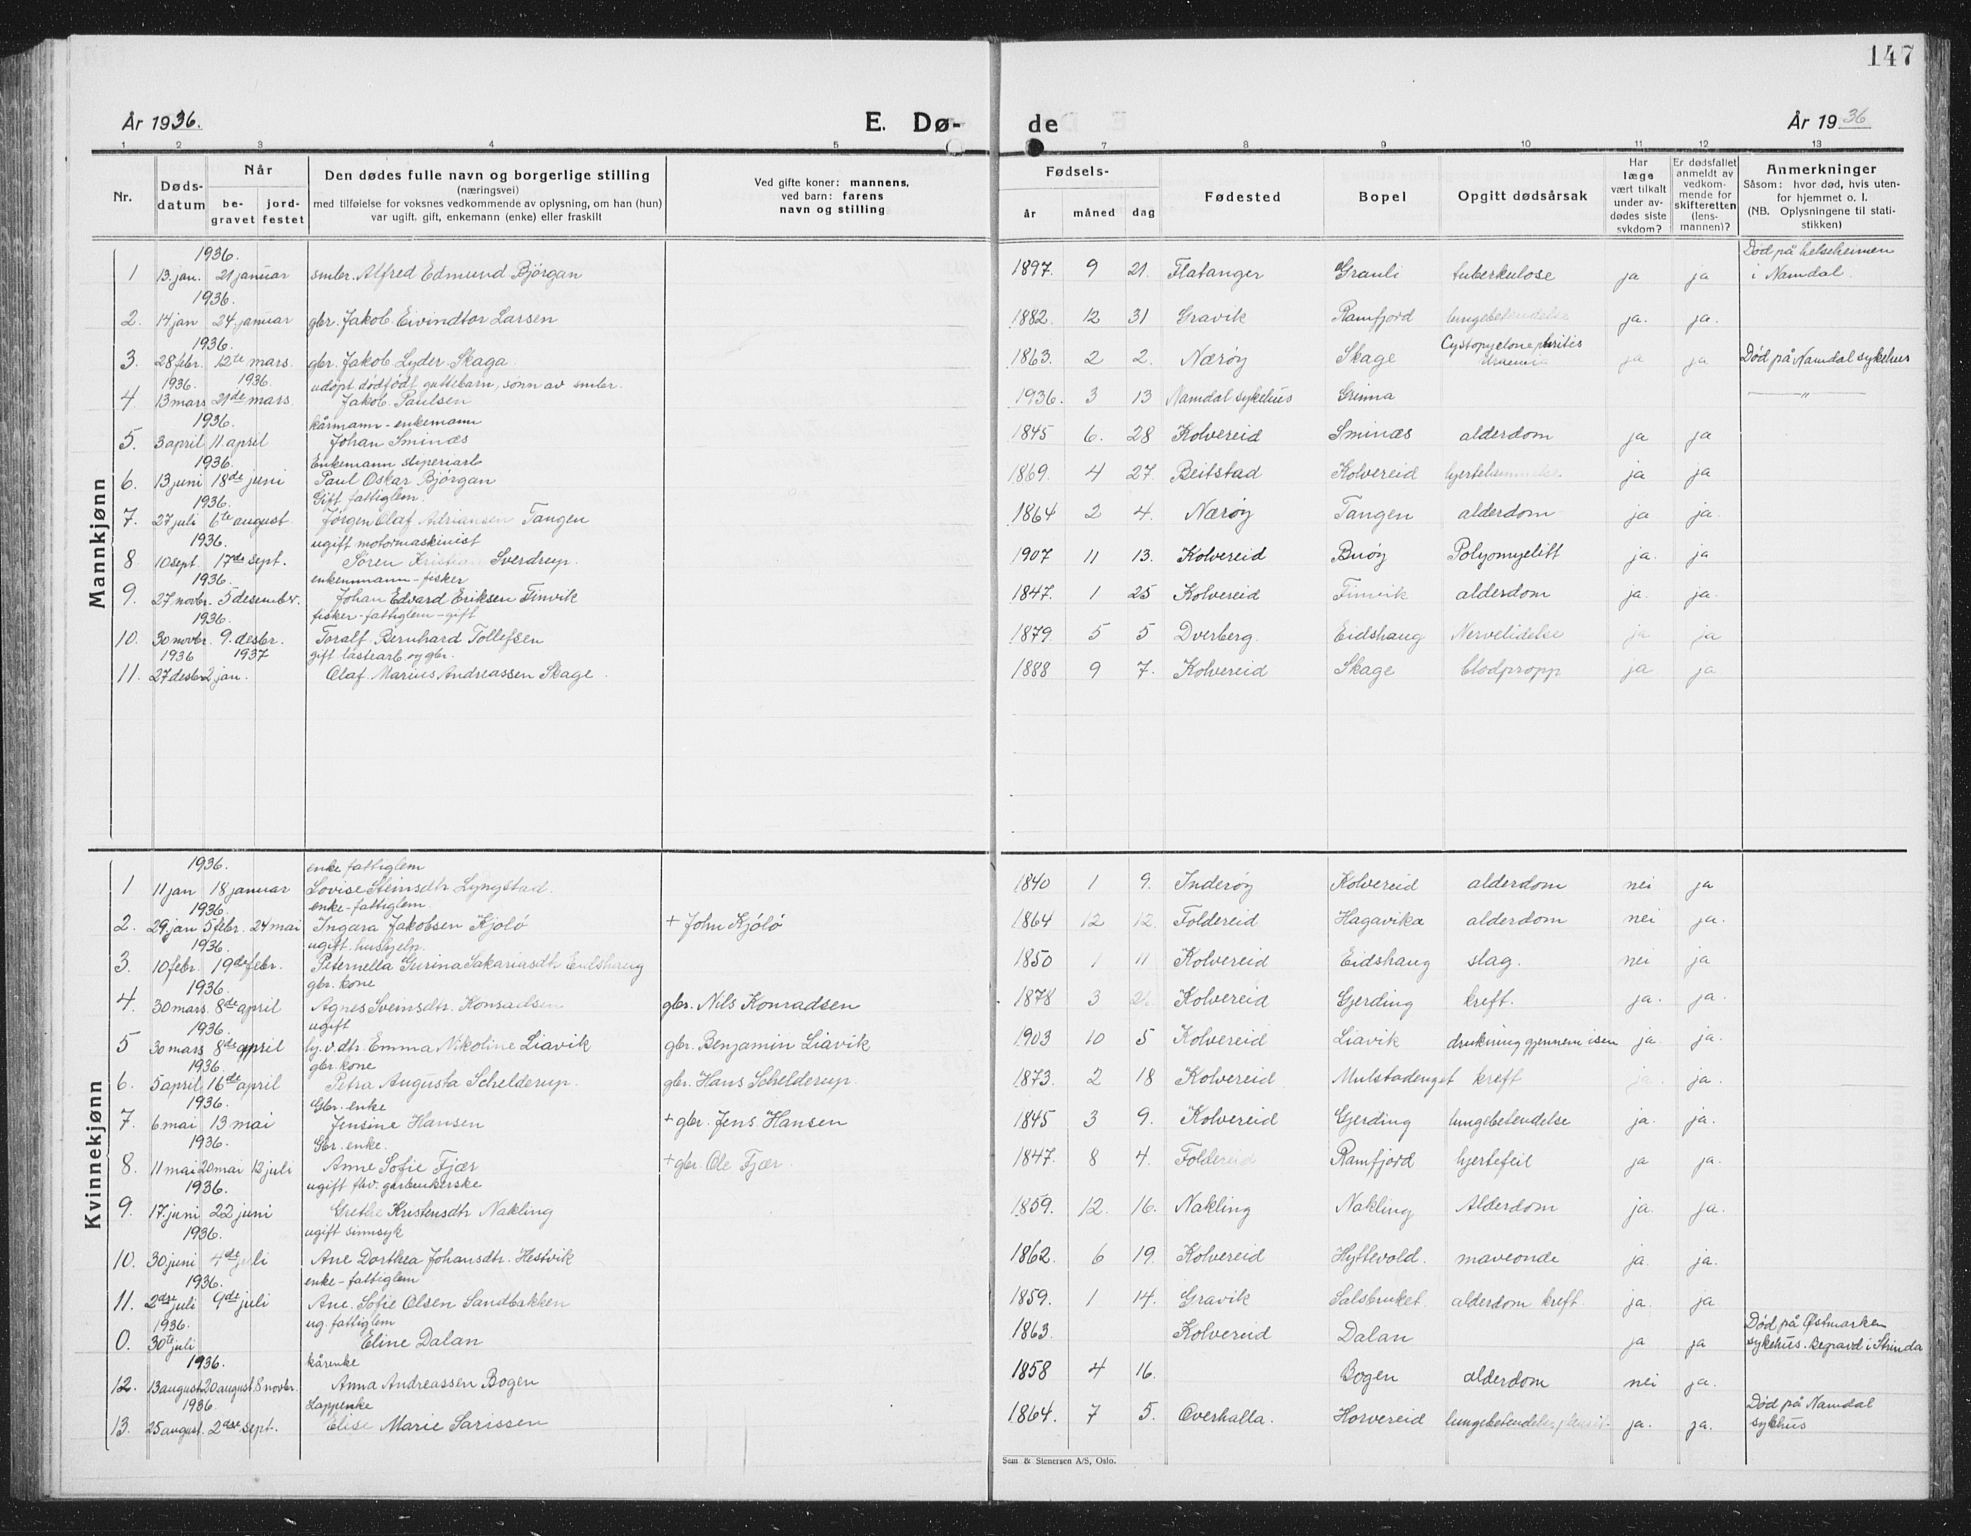 147
År 1936. E. Dø- de År 1936
1 2 3 4 5 7 8 9 10 11 12 13
Nr. Døds-datum Når be-gravet jord-festet Den dødes fulle navn og borgerlige stilling (næringsvei) med tilføielse for voksnes vedkommende av oplysning, om han (hun) var ugift, gift, enkemann (enke) eller fraskilt Ved gifte koner: mannens, ved barn: farens navn og stilling Fødsels- år måned dag Fødested Bopel Opgitt dødsårsak Har læge vært tilkalt under av-dødes siste sykdom? Er dødsfallet anmeldt av vedkom-mende for skifteretten (lens-mannen)? Anmerkninger Såsom: hvor død, hvis uten-for hjemmet o. l. (NB. Oplysningene til stati-stikken)
Mannkjønn
1936. Død på helseheimen
1 13. jan. 21 januar smbr. Alfred Edmund Bjørgan 1897. 9 21. Flatanger Grauli tuberkulose ja ja i Namdal.
1936.
2. 14 jan 24. januar gbr. Jakob Eivindtor Larsen 1882. 12 31 Gravik Ramfjord lungebetendelse ja. ja.
1936. Cystopyelonephritis
3. 28 febr. 12te mars. gbr. Jakob Lyder Skaga. 1863. 2 2. Nærøy Skage Uraemia ja ja Død på Namdal sykehus
1936. 1936. udøpt dødfødt guttebarn, sønn av smbr.
4 13 mars 21de mars Jakob Paulsen 1936. 3 13 Namdal sykehus Grinna — " —
1936. kårmann - enkemann
5. 3 april 11. april Johan Sminæs 1845 6. 28 Kolvereid Sminæs alderdom ja ja
1936. Enkemann sliperiarb
6. 13 juni 18de juni Paul Oskar Bjørgan 1869. 4 27. Beitstad Kolvereid hjertelammelse ja ja
1936. Gift fattiglem.
7. 27 juli 6te august Jørgen Olaf Adriansen Tangen 1864 2 4. Nærøy Tangen alderdom ja ja.
1936. ugift motormaskinist
8 10 sept. 17de sept. Søren Kristian Sverdrup. 1907 11 13. Kolvereid Buøy Polyomyelitt ja. ja
1936. enkemmann - fisker
9. 27 novbr. 5 desember. Johan Edvard Eriksen Finvik 1847. 1 25 Kolvereid Finvik alderdom ja. ja.
1936. fisker - fattiglem - gift
10. 30 novbr. 9. desbr. Toralf Bernhard Tollefsen 1879. 5 5 Dverberg. Eidshaug Nervelidelse ja ja
1936 1937 gift lastearb. og gbr.
11. 27 desbr 2 jan. Olaf Marius Andreassen Skage. 1888 9 7. Kolvereid Skage blodpropp ja ja
Kvinnekjønn
1936. enke fattiglem
1 11 jan 18 januar Lovise Steinsdtr Lyngstad. 1840 1 9. Inderøy Kolvereid alderdom nei ja
1936. enke - fattiglem.
2. 29 jan 5 febr. 24 mai Ingara Jakobsen Kjolø + John Kjölö 1864 12 12. Foldereid Hagavika alderdom nei ja.
1936. ugift hushjelp.
3. 10 febr. 19de febr. Peternella Gurina Sakariasdtr Eidshaug 1850 1 11 Kolvereid Eidshaug slag. nei ja
1936. gbr. kone
4. 30 mars. 8de april Agnes Sveinsdtr. Konradsen gbr. Nils Konradsen 1878 3 Kolvereid Gjerding kreft. ja. ja.
1936. ugift
5 30 mars 8de april hj. v. dtr. Emma Nikoline Liavik gbr. Benjamin Liavik 1903 10 5 Kolvereid Liavik drukning gjennem isen ja. ja.
1936. gbr. kone
6. 5 april 16de april Petra Augusta Schelderup. gbr. Hans Schelderup. 1873. 2 18 Kolvereid Mulstadenget kreft ja. ja.
1936. Gbr. enke
7. 6 mai 13 mai Jensine Hansen + gbr. Jens. Hansen 1845 3 9. Kolvereid Gjerding lungebetendelse ja. ja.
1936. Gbr. enke.
8. 11 mai 20 mai 12 juli Anne Sofie Fjær + gbr. Ole Fjær. 1847. 8 4. Foldereid Ramfjord hjertefeil ja ja.
1936. ugift fhv. garbrukerske
9. 17. juni 22 juni Grethe Kristensdtr Nakling 1859. 12. 16. Nakling Nakling Alderdom ja. ja.
1936. ugift sinnsyk
10. 30 juni 4de juli Ane Dorthea Johansdtr. Hestvik 1862. 6 19. Kolvereid Hyttevold. maveonde ja. ja.
1936. enke - fattiglem
11. 2dre juli 9de juli Ane. Sofie Olsen Sandbakken 1859. 1 14. Gravik Salsbruket. alderdom kreft. ja. ja
1936. ug. fattiglem Død på Østmarken
0. 30te juli Eline Dalan 1863. Kolvereid Dalan ja ja sykehus. Begravd i Strinda
1936. kårenke
12. 13 august 20 august 8 novbr. Anna Andreassen Bogen 1858 4 16. Bogen alderdom nei ja.
1936 Lappenke Død på Namdal
13. 25 august. 2dre sept. Elise Marie Sarissen 1864. 7 5. Overhalla. Horvereid lungebetendelse, ja. ja. sykhus
Sem & Stenersen A/S, Oslo.